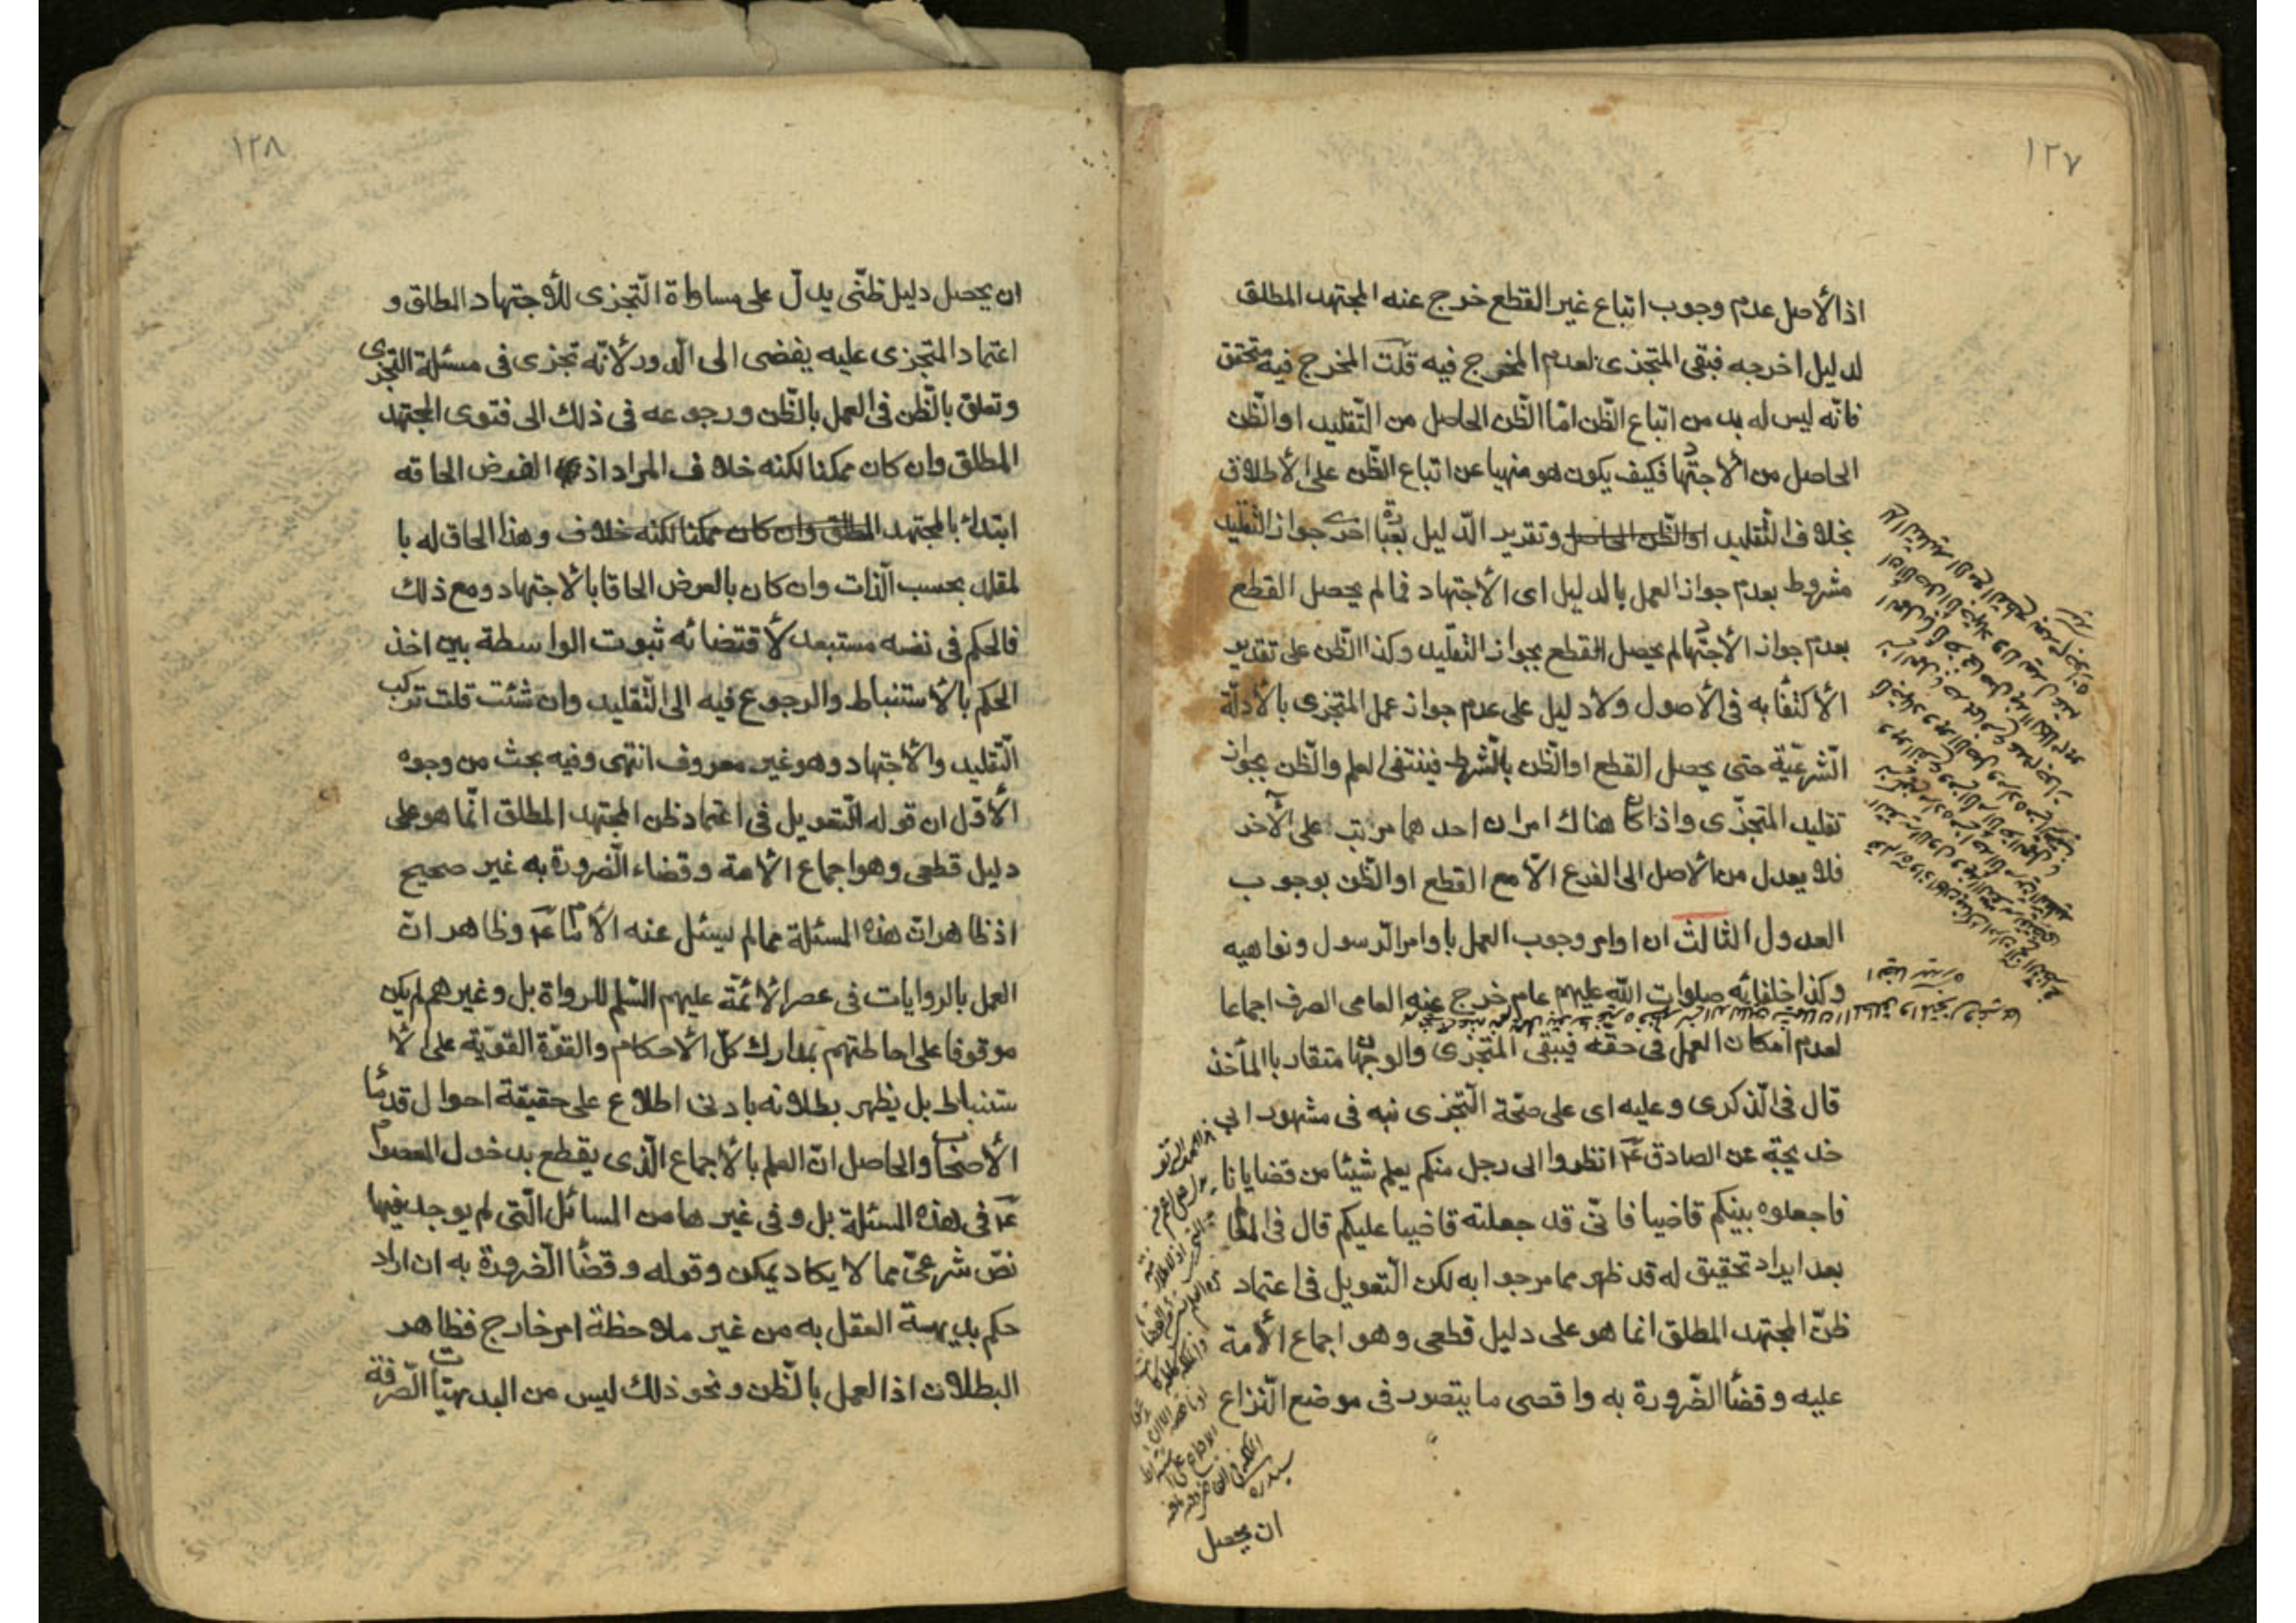 ١٢٧
اذ الأصل عدم وجوب اتباع غير القطع خرج عنه المجتهد المطلق
لدليل اخرجه فبقى المتجزى لعدم المخرج فيه قلت المخرج فيه متحقق
فانّه ليس له بد من اتباع الظّن امّا الظّن الحاصل من التّقليد او الظّن
الحاصل من الاجتهاد فكيف يكون هو منهيا عن اتباع الظّن على الاطلاق
بخلاف التّقليد او الظّن الحاصل وتقرير الدّليل بعبارة اخرى جواز التّقليد
مشروط بعدم جواز العمل بالدليل اى الاجتهاد فما لم يحصل القطع
بعدم جواز الاجتهاد لم يحصل القطع بجواز التّقليد وكذا الظّن على تقدير
الأكتفاء به فى الأصول ولا دليل على عدم جواز عمل المتجزى بالأدلّة
الشّرعيّة حتى يحصل القطع او الظّن بالشّرط فينتفى العلم والظّن بجواز
تقليد المتجزّى واذا كان هناك امران احدهما مرتب على الآخر
فلا يعدل من الأصل الى الفرع الّا مع القطع او الظّن بوجوب
العدول الثالث ان اوامر وجوب العمل باوامر الرّسول ونواهيه
وكذا خلفائه صلوات اللّه عليهم عام خرج عنه العامى الصرف اجماعا
لعدم امكان العمل فى حقه فيبقى المتجزى والوجهان متقاربا المأخذ
قال فى الذّكرى وعليه اى على صحّة التّجزى نبه فى مشهور ابى
خديجة عن الصادق ع انظروا الى رجل منكم يعلم شيئا من قضايانا
فاجعلوه بينكم قاضيا فانّى قد جعلته قاضيا عليكم قال فى المعالم
بعد ايراد تحقيق له قد ظهر مما مر جوابه لكن التّعويل فى اعتماد
ظنّ المجتهد المطلق انما هو على دليل قطعى وهو اجماع الأمة
عليه وقضاء الضّرورة به واقصى ما يتصور فى موضع النّزاع
ان يحصل
١٢٨
ان يحصل دليل ظنّى يدلّ على مساواة التّجزى للأجتهاد المطلق و
اعتماد المتجزى عليه يفضى الى الدور لأنّه تجزى فى مسئلة التجزى
وتعلق بالظّن فى العمل بالظّن ورجوعه فى ذلك الى فتوى المجتهد
المطلق وان كان ممكنا لكنه خلاف المراد اذ الفرض الحاقه
ابتداء بالمجتهد المطلق وان كان ممكنا لكنه خلاف وهذا الحاق له با
لمقلد بحسب الذّات وان كان بالعرض الحاقا بالاجتهاد ومع ذلك
فالحكم فى نفسه مستبعد لأقتضائه ثبوت الواسطة بين اخذ
الحكم بالأستنباط والرجوع فيه الى التّقليد وان شئت قلت تركب
التّقليد والأجتهاد وهو غير معروف انتهى وفيه بحث من وجوه
الأوّل ان قوله التّعويل فى اعتماد ظن المجتهد المطلق انّما هو على
دليل قطعى وهو اجماع الأمة وقضاء الضّرورة به غير صحيح
اذ ظاهر ان هذه المسئلة مما لم يسئل عنه الأمام ع وظاهر ان
العمل بالروايات فى عصر الأئمّة عليهم السّلم للرواة بل وغيرهم لم يكن
موقوفا على احاطتهم بمدارك كلّ الأحكام والقوّة القويّة على الأ
ستنباط بل يظهر بطلانه بادنى اطلاع على حقيقة احوال قدماء
الأصحاب والحاصل ان العلم بالأجماع الّذى يقطع بدخول المعصوم
ع فى هذه المسئلة بل وفى غيرها من المسائل الّتى لم يوجد فيها
نصّ شرعىّ مما لا يكاد يمكن وقوله وقضاء الضّرورة به ان اراد
حكم بديهة العقل به من غير ملاحظة امر خارج فظاهر
البطلان اذ العمل بالظّن ونحو ذلك ليس من البديهيّات الصّرفة